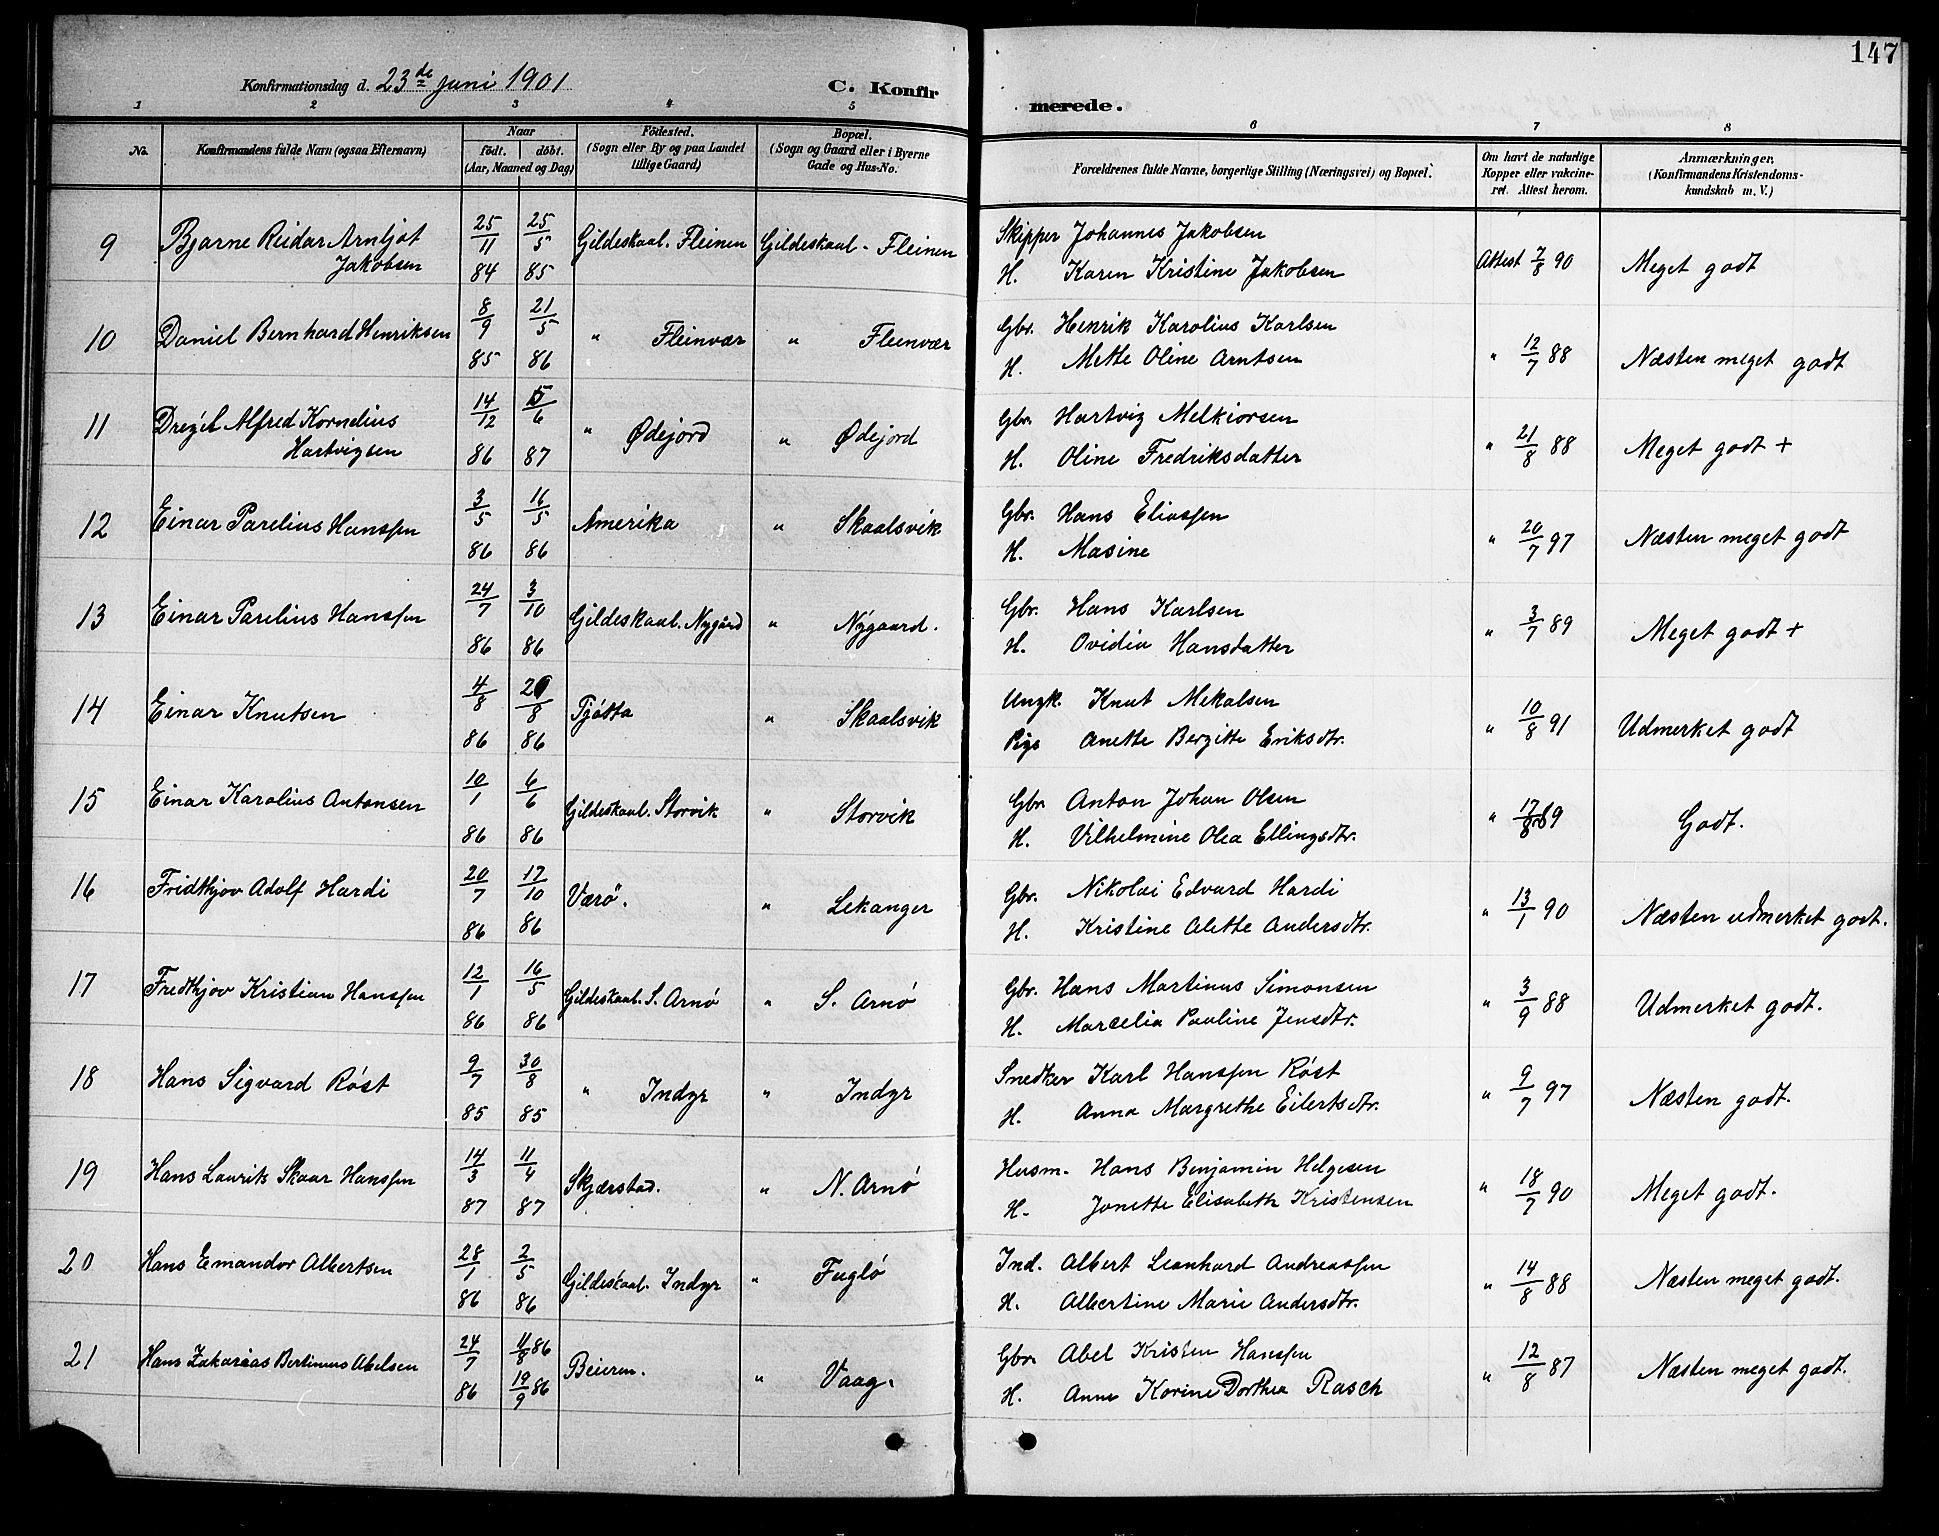 147
Konfirmationsdag d. 23de juni 1901 C. Konfirmerede.
1 2 3 4 5 6 7 8
No. Konfirmandens fulde Navn (ogsaa Efternavn) Naar født. døbt. (Aar, Maaned og Dag) Fødested. (Sogn eller By og paa Landet tillige Gaard) Bopæl. (Sogn og Gaard eller i Byerne Gade og Hus-No. Forældrenes fulde Navne, borgerlige Stilling (Næringsvei) og Bopæl. Om havt de naturlige Kopper eller vakcineret. Attest herom. Anmærkninger. (Konfirmandens Kristendomskundskab m. V.)
9 Bjarne Reidar Arnljot Jakobsen 25/11 84 25/5 85 Gildeskaal. Fleinen Gildeskaal - Fleinen Skipper Johannes Jakobsen Attest 7/8 90 Meget godt
H. Karen Kristine Jakobsen
10 Daniel Bernhard Henriksen 8/9 85 21/5 86 " Fleinvær " Fleinvær Gbr. Henrik Karolius Karlsen " 12/7 88 Næsten meget godt
H. Mette Oline Arntsen
11 Alfred Kornelius Hartvigsen 14/12 86 5/6 87 " Ødejord " Ødejord Gbr. Hartvig Melkiorsen " 21/8 88 Meget godt +
H. Oline Fredriksdatter
12 Einar Parelius Hanssen 3/5 86 16/5 86 Amerika " Skaalsvik Gbr. Hans Eliassen " 20/7 97 Næsten meget godt
H. Masine
13 Einar Parelius Hanssen 24/7 86 3/10 86 Gildeskaal. Nygård " Nygaard. Gbr. Hans Karlsen " 3/7 89 Meget godt +
H. Ovidia Hansdatter
14 Einar Knutsen 4/8 86 /8 86 Tjøtta " Skaalsvik Ungk. Knut Mekalsen " 10/8 91 Udmerket godt
Pige Anette Bergitte Eriksdtr.
15 Einar Karolius Antonsen 10/1 86 6/6 86 Gildeskaal. Storvik " Storvik Gbr Anton Johan Olsen " 17/8 89 Godt.
H. Vilhelmine Olea Ellingsdtr.
16 Fridthjov Adolf Hardi 20/7 86 17/10 86 Værö. " Lekanger Gbr. Nikolai Edvard Hardi " 13/1 90 Næsten udmerket godt.
H. Kristine Alette Andersdtr.
17 Fredthjov Kristian Hanssen 12/1 86 16/5 86 Gildeskaal. S. Arnø " S. Arnø Gbr. Hans Martinus Simonsen " 3/9 88 Udmerket godt.
H. Marcelia Pauline Jensdtr.
18 Hans Sigvard Røst 9/7 85 30/8 85 " Indyr " Indyr Snedker Karl Hanssen Røst " 9/7 97 Næsten godt.
H. Anna Margrethe Eilertsdtr.
19 Hans Laurits Skaar Hanssen 14/3 87 11/4 87 Skjærstad. " N. Arnø Husm. Hans Benjamin Helgesen " 18/7 90 Meget godt.
H. Jonette Elisabeth Kristensen
20 Hans Emandor Albertsen 28/1 86 2/5 86 Gildeskaal. Indyr " Fuglø Ind. Albert Leonhard Andreassen " 14/8 88 Næsten meget godt.
H. Albertine Marie Andersdtr.
21 Hans Zakarias Bertinus Abelsen 24/7 86 11/8 86 19/9 86 Beieren. " Vaag. Gbr. Abel Kristen Hanssen " 12/8 87 Næsten meget godt.
H. Anne Korine Dorthea Rasch